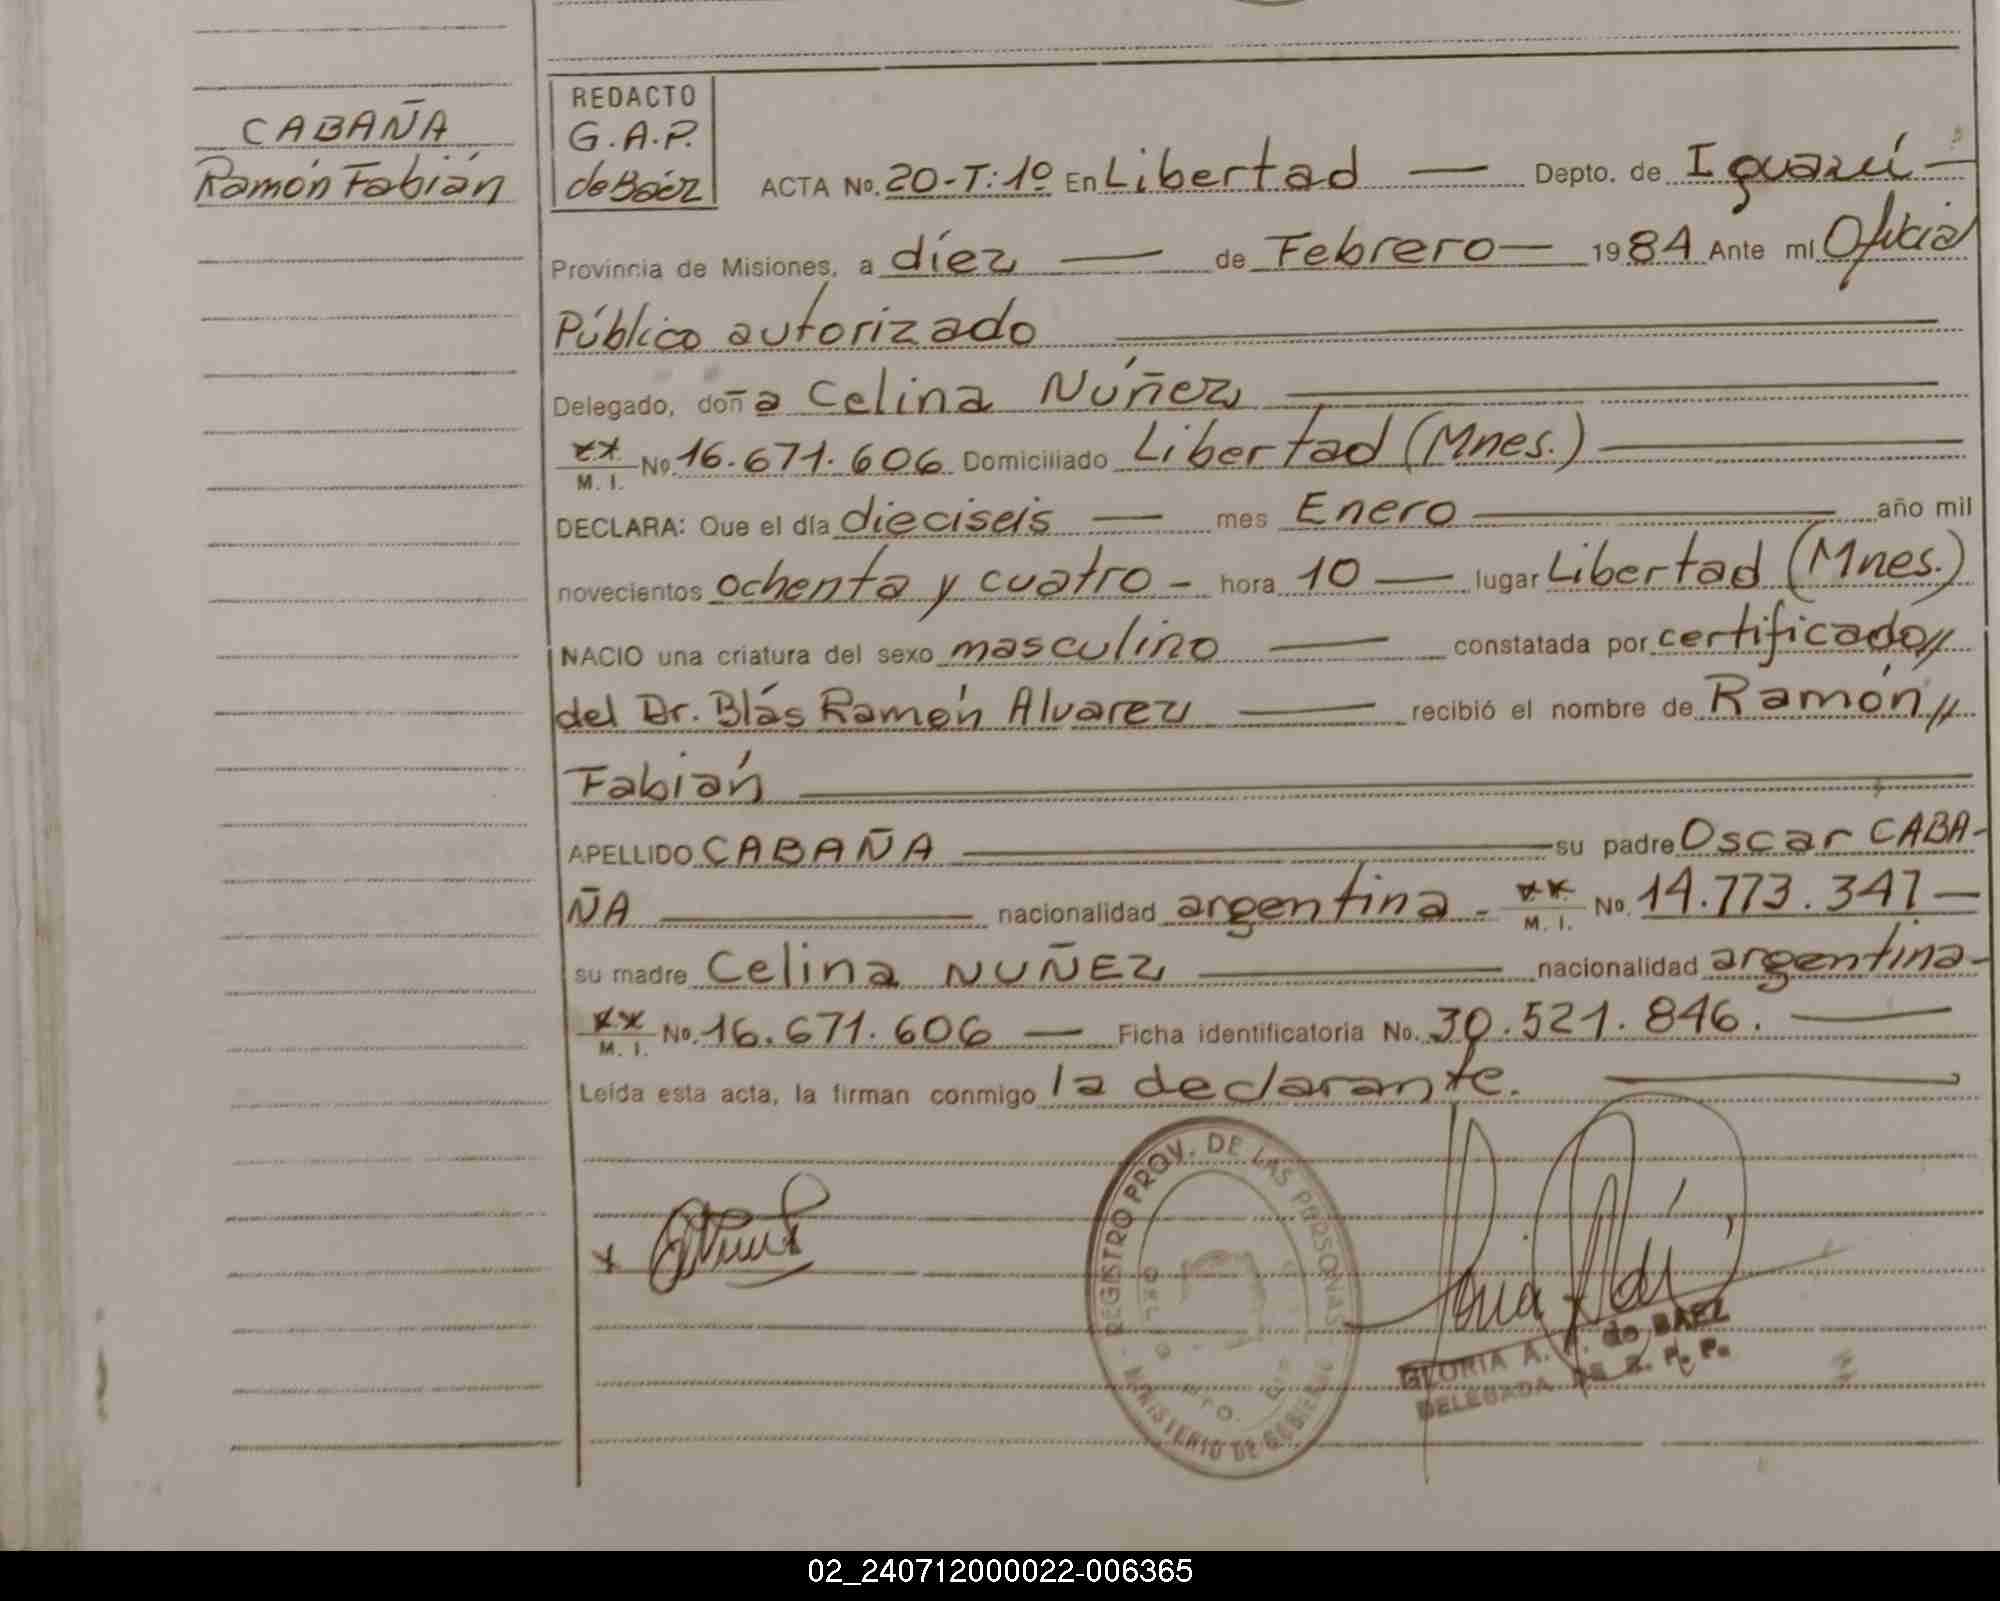 CABAÑA
Ramón Fabián
REDACTO
G.A.P.
de Báez
ACTA No. 20-T:1º En Libertad — Depto. de Iguazú —
Provincia de Misiones, a díez — de Febrero — 1984 Ante mí Oficial
Público autorizado
Delegado, doña Celina Núñez
M. I. No. 16.671.606 Domiciliado Libertad (Mnes.)
DECLARA: Que el día dieciseis — mes Enero — año mil
novecientos ochenta y cuatro - hora 10 — lugar Libertad (Mnes.)
NACIO una criatura del sexo masculino — constatada por certificado//
del Dr. Blás Ramón Alvarez — recibió el nombre de Ramón //
Fabián
APELLIDO CABAÑA — su padre Oscar CABA-
ÑA — nacionalidad argentina - M. I. No. 14.773.347 —
su madre Celina NUÑEZ — nacionalidad argentina -
M. I. No. 16.671.606 — Ficha identificatoria No. 30.521.846. —
Leída esta acta, la firman conmigo la declarante.
REGISTRO PROV. DE LAS PERSONAS
MINISTERIO DE GOBIERNO
GLORIA A. P. de BAEZ
DELEGADA
02_240712000022-006365